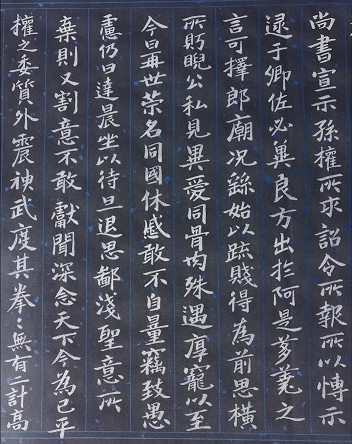 尚書宣示孫權所求詔令所報所以愽示
逮于卿佐必冀良方出於阿是芻蕘之
言可擇郎廟況繇始以疏賤得為前思橫
所眄睨公私見異愛同骨肉殊遇厚寵以至
今日再世荣名同國休慼敢不自量竊致愚
慮仍日達晨坐以待旦退思鄙淺聖意所
棄則又割意不敢獻聞深念天下今為已平
權之委質外震神武度其拳〻無有二計高